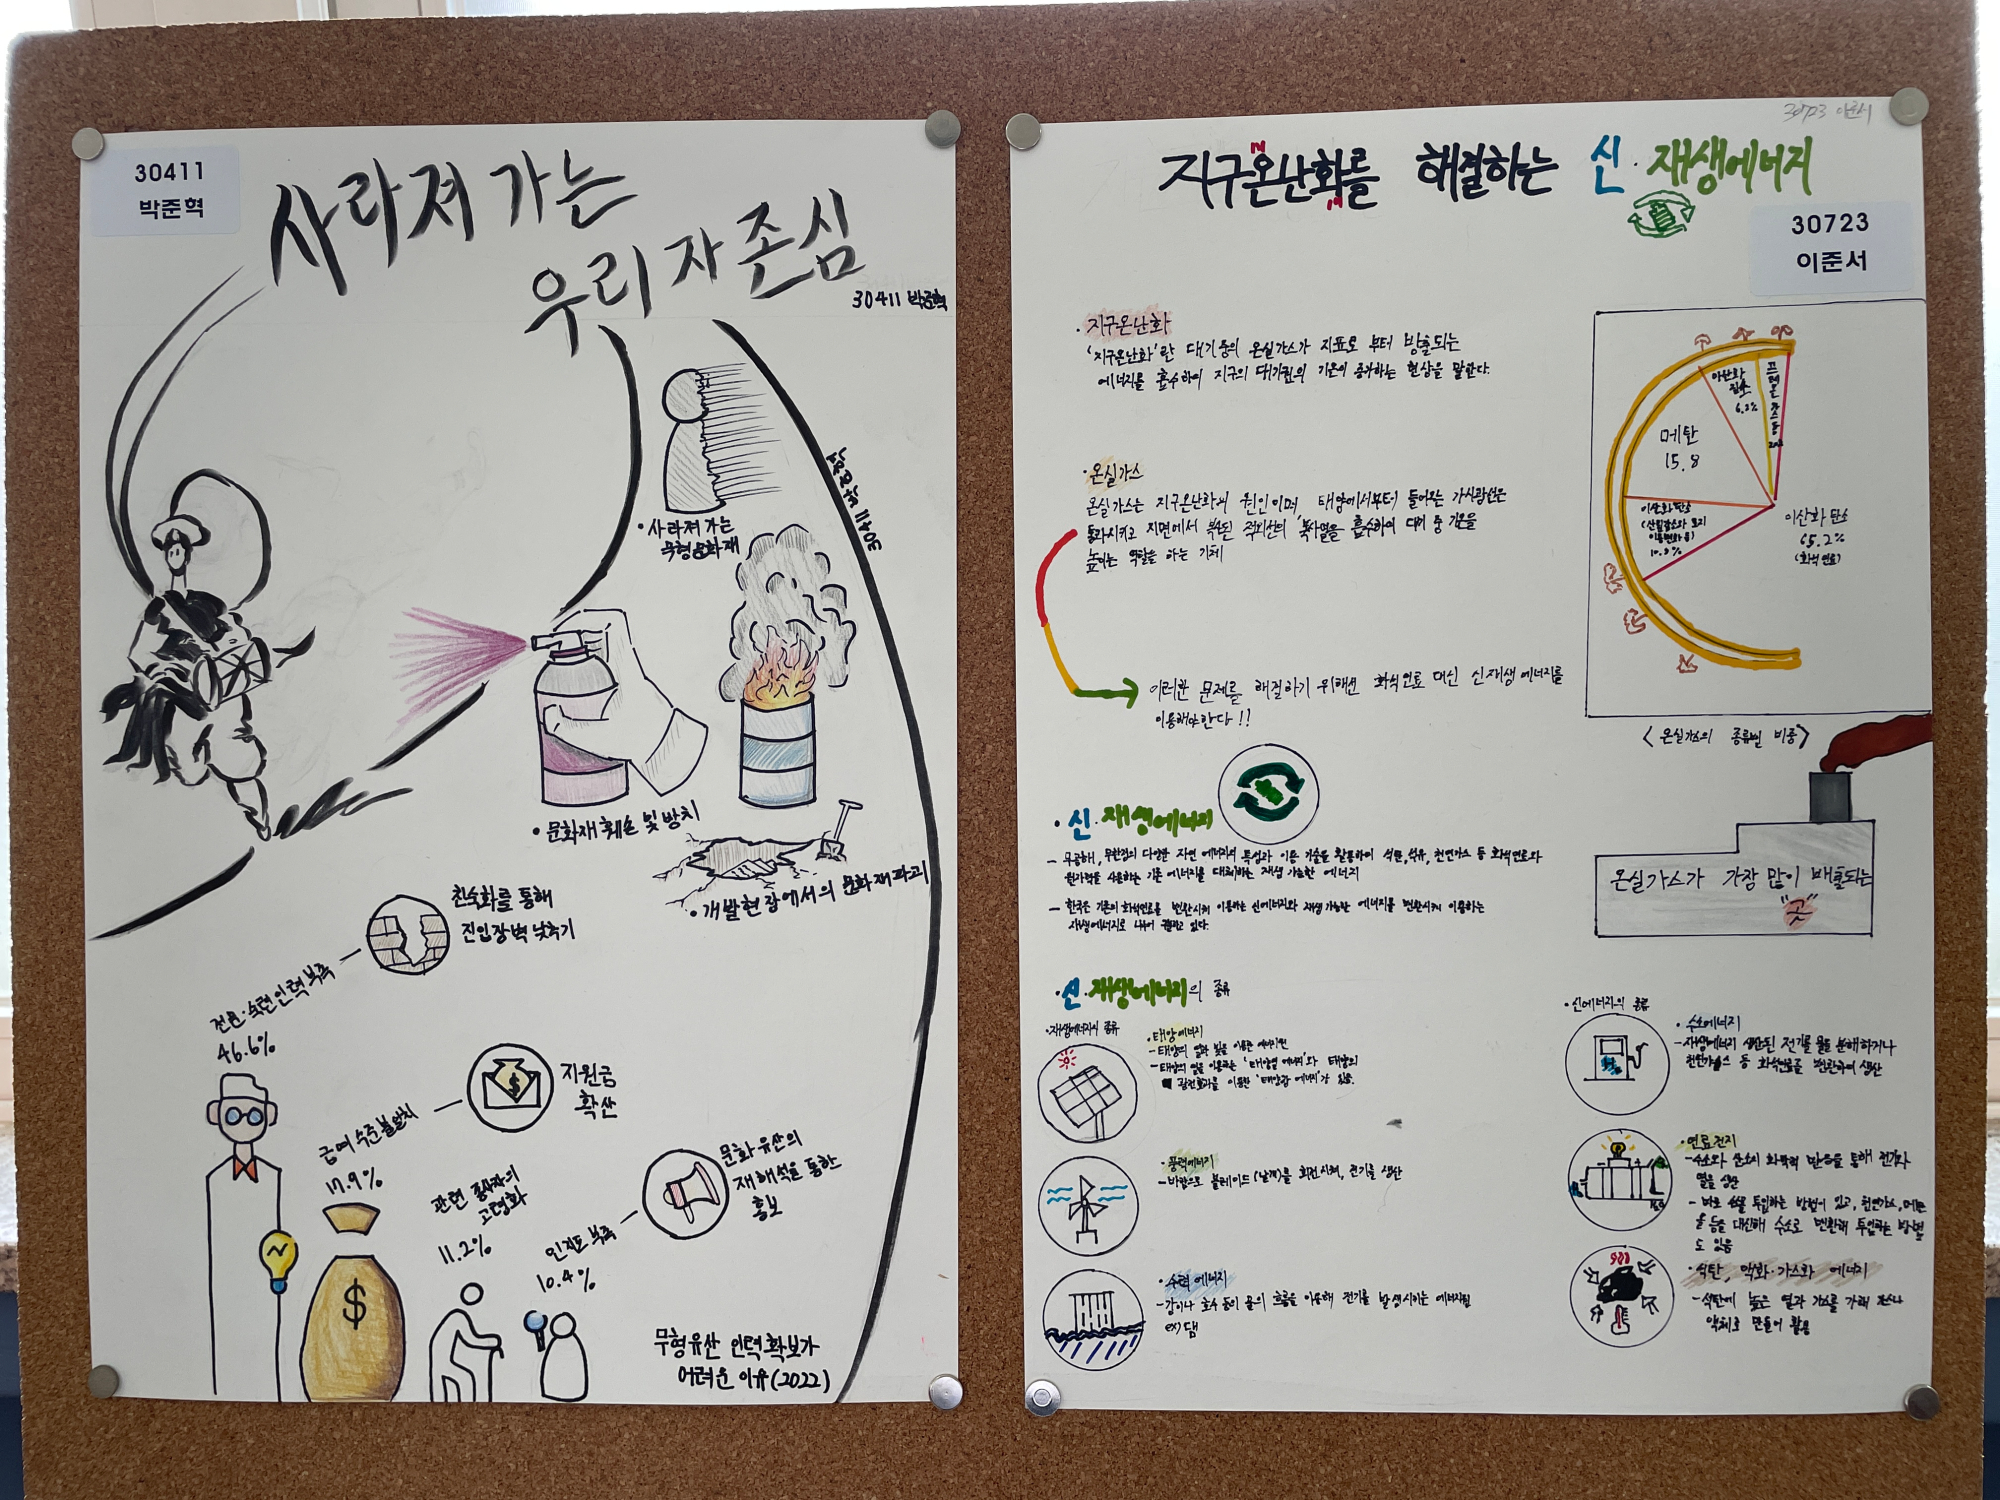 30411
박준혁
사라져 가는
우리 자존심
30411 박준혁
30411 박준혁
• 사라져 가는
무형문화재
• 문화재 훼손 및 방치
• 개발현장에서의 문화재파괴
친숙화를 통해
진입장벽 낮추기
전문·숙련인력 부족
46.6%
지원금
확산
급여 수준 불일치
17.9%
문화유산의
재해석을 통한
홍보
관련 종사자의
고령화
11.2%
인지도 부족
10.4%
무형유산 인력확보가
어려운 이유(2022)
30723 이준서
지구온난화를 해결하는 신·재생에너지
30723
이준서
• 지구온난화
'지구온난화'란 대기중의 온실가스가 지표로 부터 방출되는
에너지를 흡수하여 지구의 대기권의 기온이 증가하는 현상을 말한다.
• 온실가스
온실가스는 지구온난화의 원인이며, 태양에서부터 들어오는 가시광선은
통과시키고 지면에서 복사된 적외선의 복사열을 흡수하여 대기 중 기온을
높이는 역할을 하는 기체
이러한 문제를 해결하기 위해선 화석연료 대신 신재생에너지를
이용해야한다!!
이산화
질소
6.2%
프레온가스 등
메탄
15.8
이산화탄소
(산림감소와 토지
이용변화 등)
10.9%
이산화탄소
65.2%
(화석연료)
<온실가스의 종류별 비중>
온실가스가 가장 많이 배출되는
"곳"
• 신·재생에너지
- 무공해, 무한정의 다양한 자연 에너지의 특성과 이용 기술을 활용하여 석탄,석유, 천연가스 등 화석연료와
원자력을 사용하는 기존 에너지를 대체하는 재생 가능한 에너지
- 한국은 기존의 화석연료를 변환시켜 이용하는 신에너지와 재생가능한 에너지를 변환시켜 이용하는
재생에너지로 나누어 있다.
• 신·재생에너지의 종류
• 재생에너지의 종류
• 태양에너지
- 태양의 열과 빛을 이용한 에너지원
- 태양의 열을 이용하는 '태양열 에너지'와 태양의
광전효과를 이용한 '태양광 에너지'가 있음.
• 풍력에너지
- 바람으로 블레이드(날개)를 회전시켜, 전기를 생산
• 수력에너지
- 강이나 호수 등의 물의 흐름을 이용해 전기를 발생시키는 에너지원
ex) 댐
• 신에너지의 종류
• 수소에너지
- 재생에너지 생산된 전기로 물을 분해하거나
천연가스 등 화석연료를 변환하여 생산
• 연료전지
- 수소와 산소의 화학적 반응을 통해 전기와
열을 생산
- 바로 수소를 투입하는 방법이 있고, 천연가스, 메탄
올 등을 대신해 수소로 변환해 투입하는 방법
도 있음
• 석탄, 액화·가스화 에너지
- 석탄에 높은 열과 가스를 가해 가스나
액체로 만들어 활용